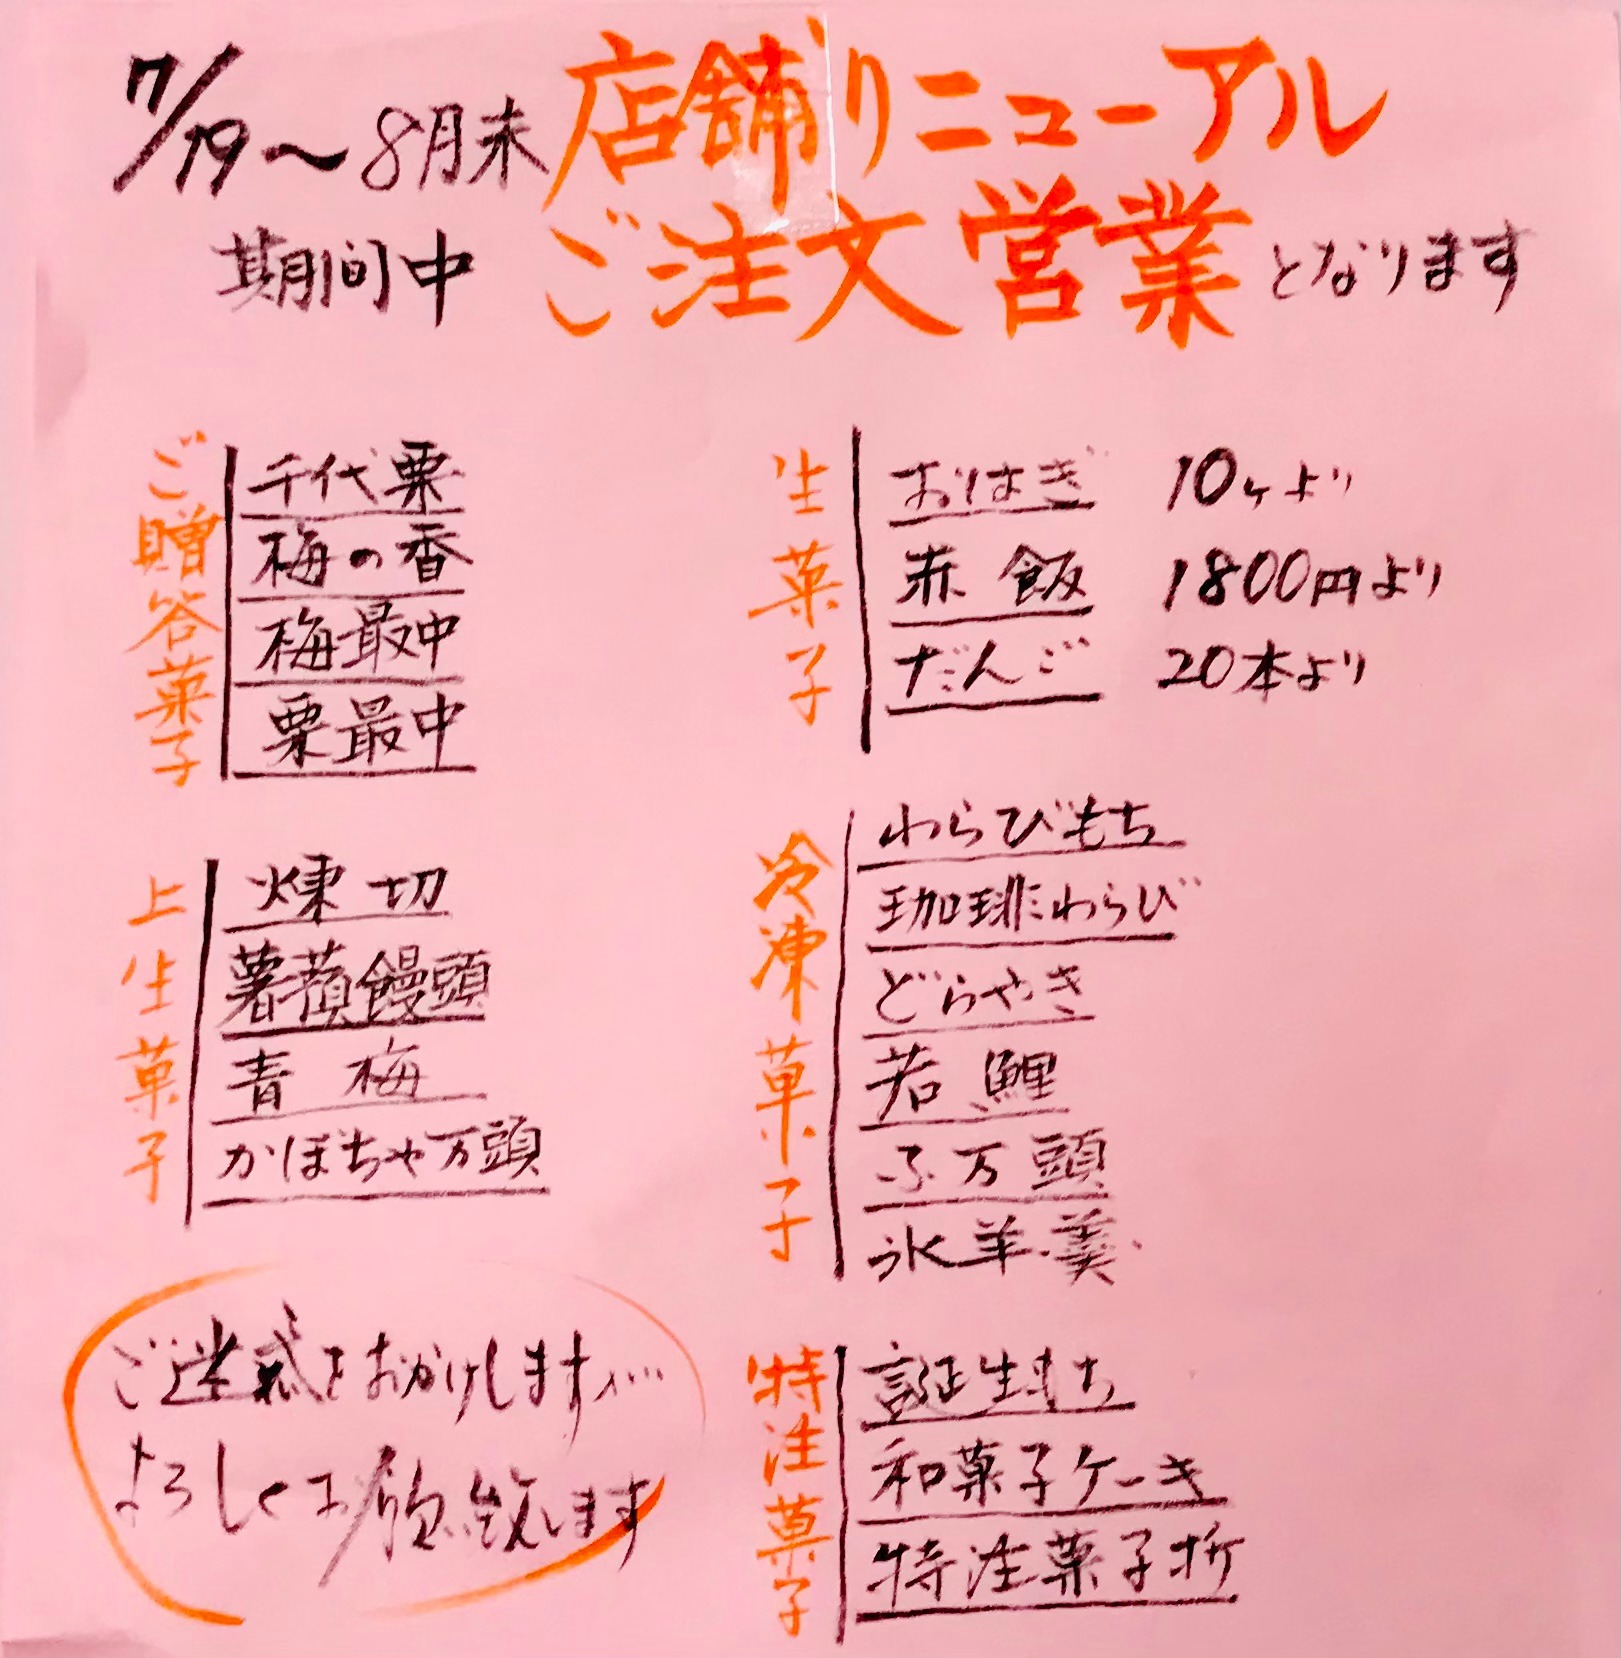 7/19〜8月末 店舗リニューアル
期間中 ご注文営業となります
ご贈答菓子
千代栗
梅の香
梅最中
栗最中
上生菓子
煉切
薯蕷饅頭
青梅
かぼちゃ万頭
生菓子
おはぎ 10ヶより
赤飯 1800円より
だんご 20本より
冷凍菓子
わらびもち
珈琲わらび
どらやき
若鯉
ふ万頭
氷羊羹
特注菓子
誕生もち
和菓子ケーキ
特注菓子折
ご迷惑をおかけしますが…
よろしくお願い致します